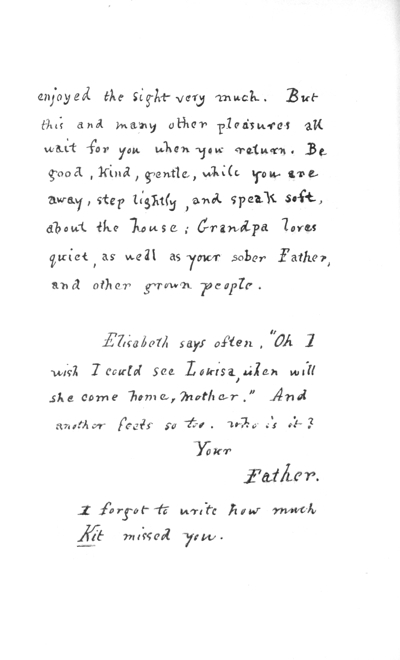 enjoyed the sight very much. But
this and many other pleasures all
wait for you when you return. Be
good, kind, gentle, while you are
away, step lightly, and speak soft,
about the house; Grandpa loves
quiet, as well as your sober Father,
and other grown people.
Elisabeth says often, "Oh I
wish I could see Louisa, when will
she come home, Mother." And
another feels so too. who is it?
Your
Father.
I forgot to write how much
Kit missed you.